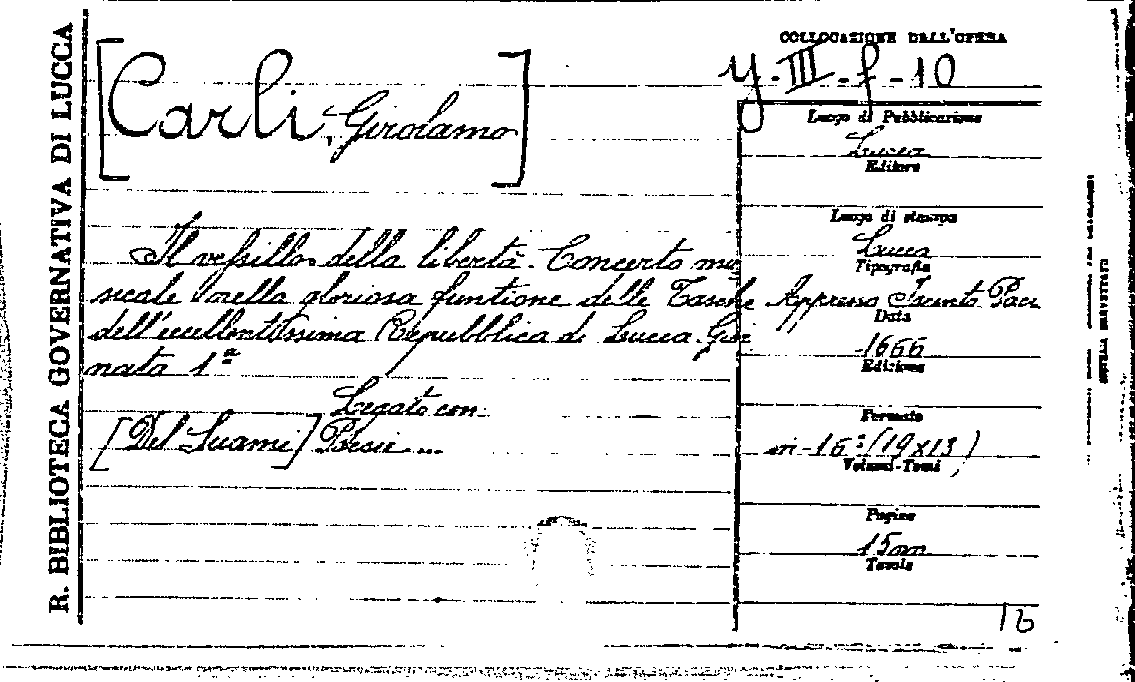 R. BIBLIOTECA GOVERNATIVA DI LUCCA
COLLOCAZIONE DELL'OPERA
y-III-f-10
[Carli, Girolamo]
Il vessillo della libertà. Concerto mu
sicale nella gloriosa funtione delle Tasche
dell'eccellentissima Repubblica di Lucca. Gior
nata 1ª
Legato con:
[Del Suami] Poesie...
Luogo di Pubblicazione
Lucca
Editore
Luogo di stampa
Lucca
Tipografia
Appresso Iacinto Paci
Data
1666
Edizione
Formato
in-16:(19x13)
Volumi-Tomi
Pagine
15nn
Tavole
16